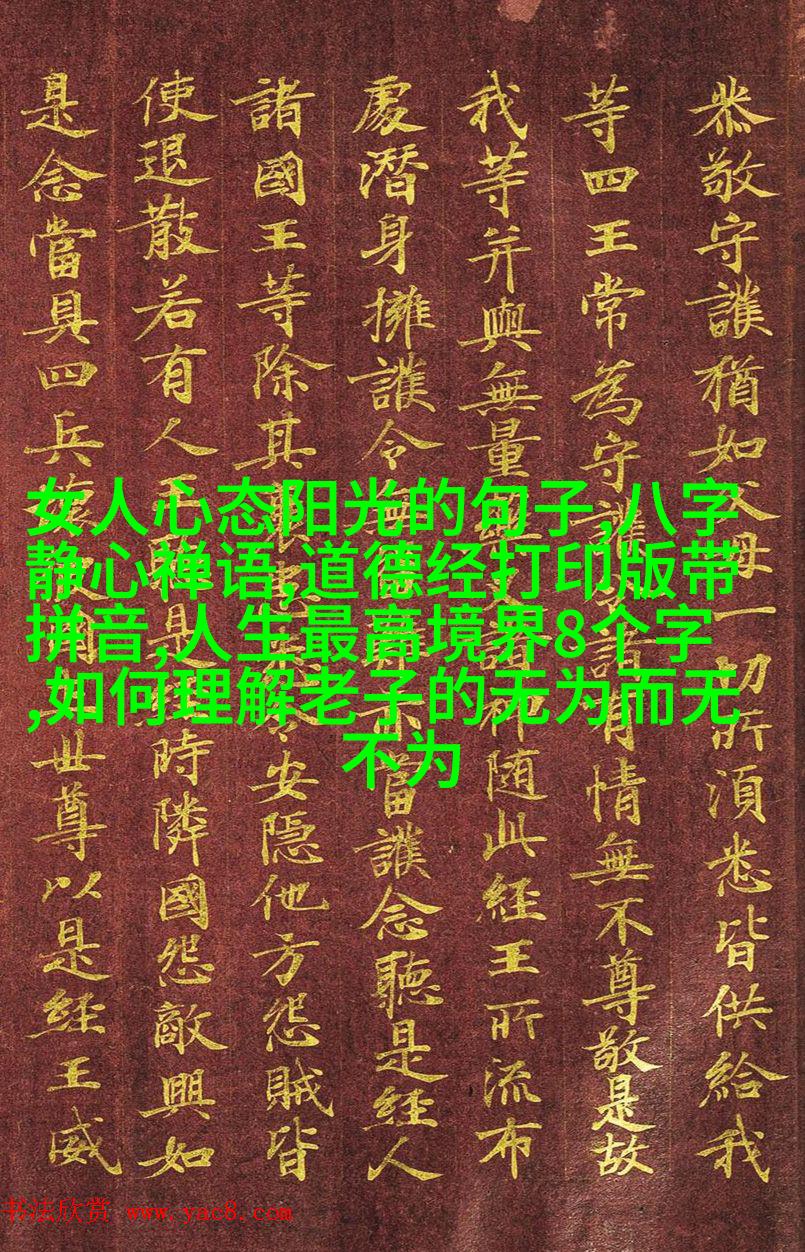 恭敬守護猶如父母一切所須悉皆供給我
等四王常為守護諸有情無不尊敬是故
我等并與無量神随此經王所流布
處潛身擁護令當護念聽是經人
諸國王等除其令安隱他方怨賊皆
使退散若有人王是時隣國怨敵興如
是念當具四兵世尊以是經王威
女人心态阳光的句子,八字
静心禅语,道德经打印版带
拼音,人生最高境界8个字
,如何理解老子的无为而无
不为
书法欣赏 www.yac8.com